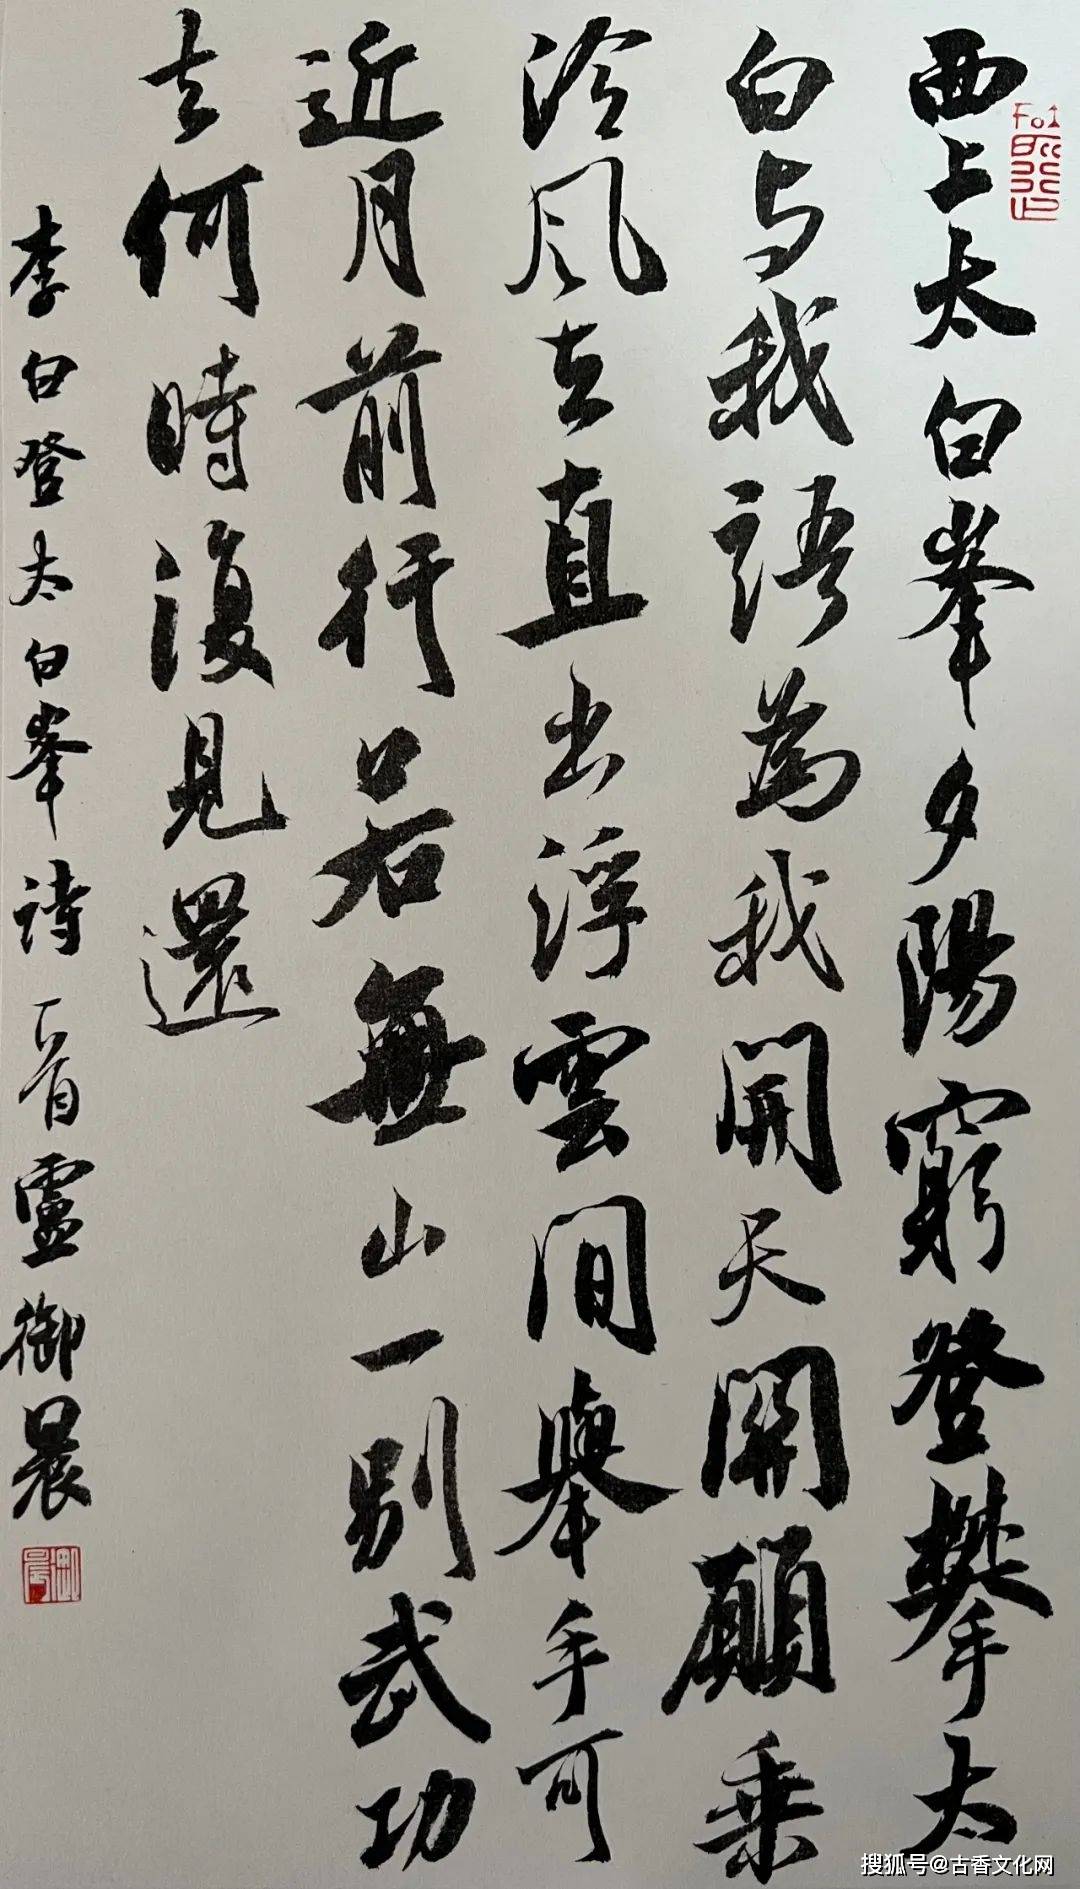 西上太白峯夕陽窮登攀太
白与我語為我開天關願乘
泠风去直出浮雲間舉手可
近月前行若無山一别武功
去何時復見還
李白登太白峯诗一首御晨
搜狐号@古香文化网